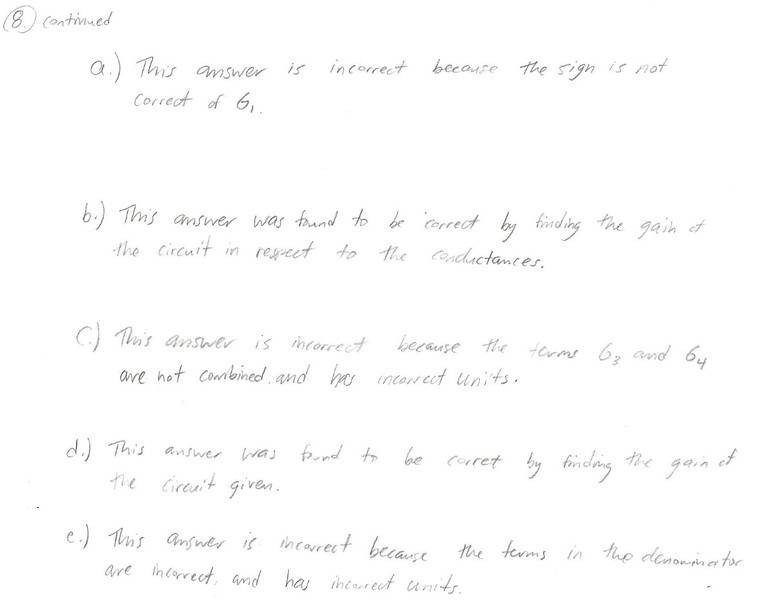 8. continued
a.) This answer is incorrect because the sign is not
correct of G1.
b.) This answer was found to be correct by finding the gain of
the circuit in respect to the conductances.
C.) This answer is incorrect because the terms G3 and G4
are not combined. and has incorrect units.
d.) This answer was found to be corret by finding the gain of
the circuit given.
e.) This answer is incorrect because the terms in the denominator
are incorrect, and has incorrect units.